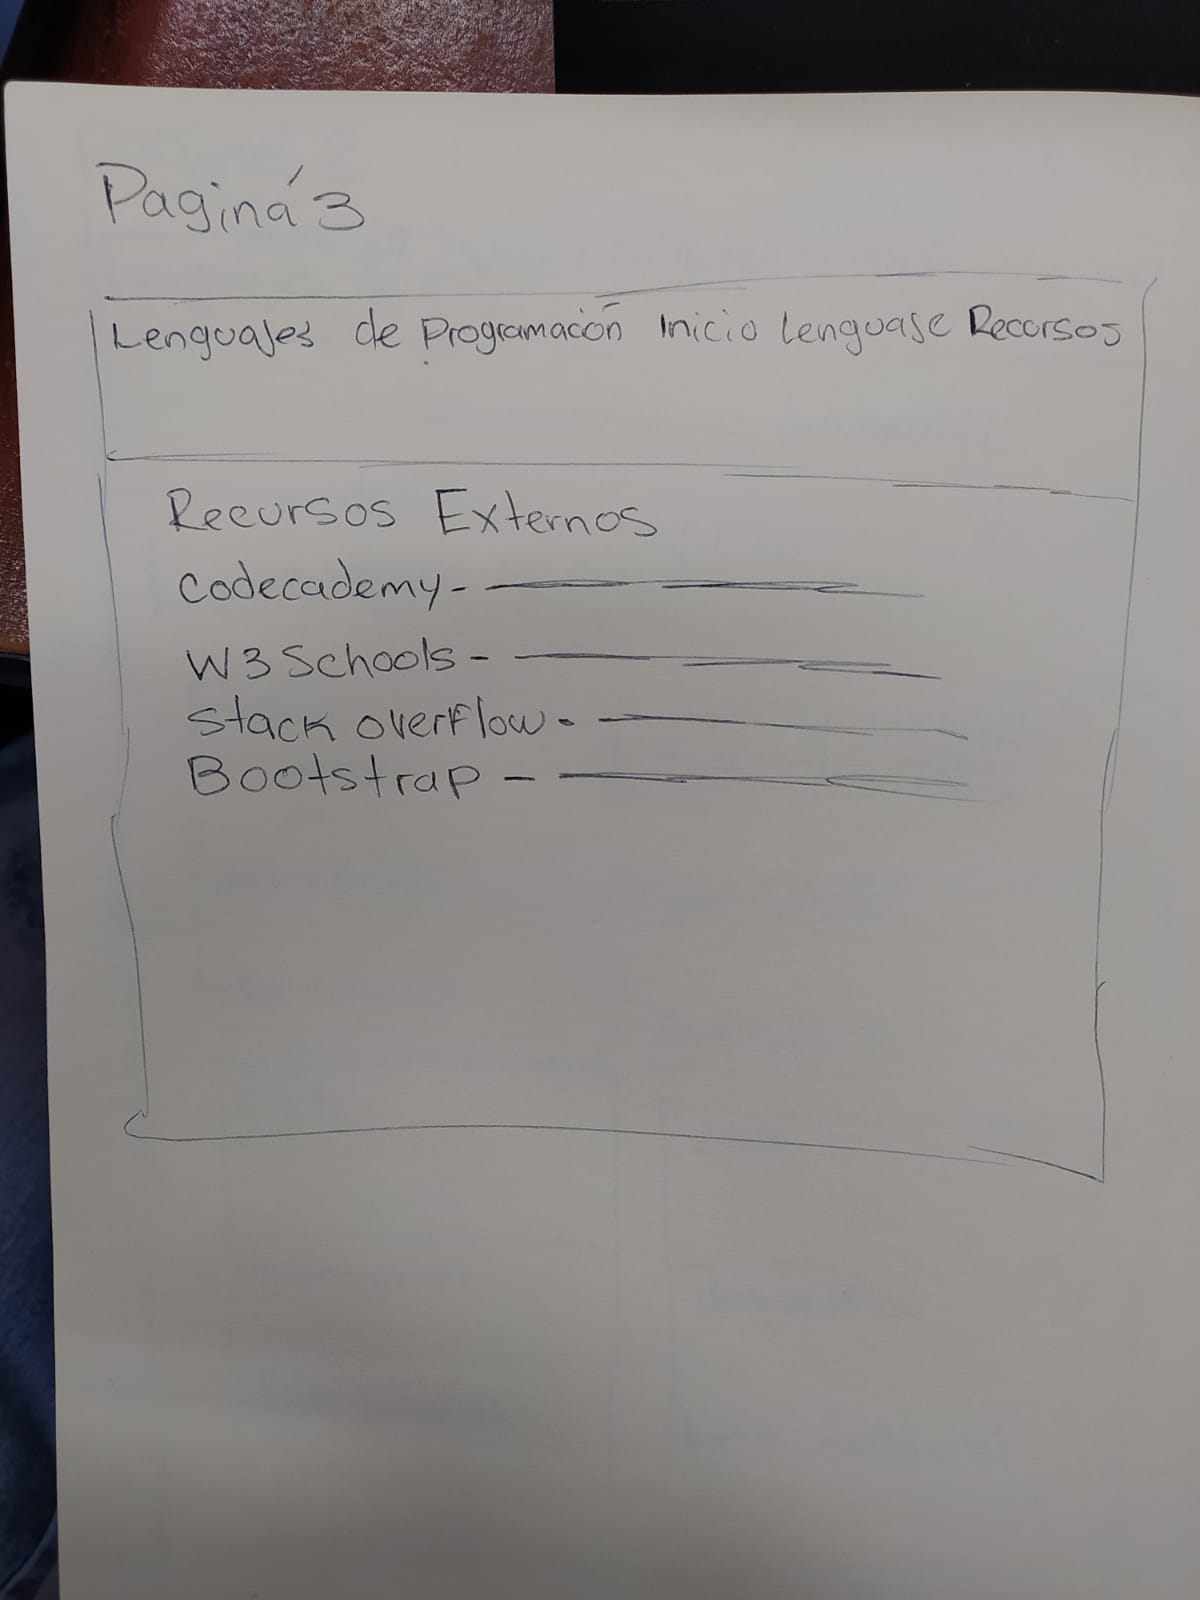 Paginá 3
Lenguajes de Programación Inicio Lenguaje Recursos
Recursos Externos
Codecademy -
W3Schools -
Stack overflow -
Bootstrap -